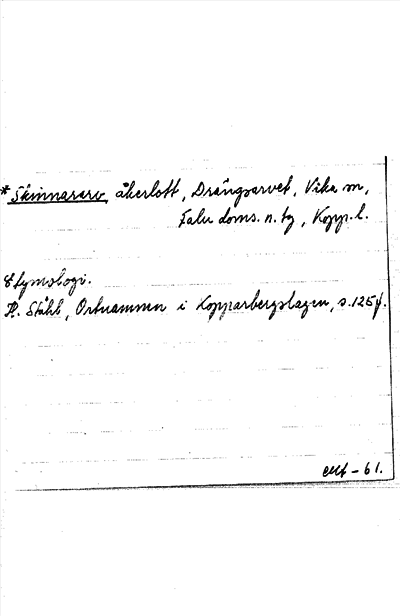 *Skinnararv, åkerlott, Drängsarvet, Vika sn,
Falu doms. n. tg, Kopp. l.
Etymologi.
H. Ståhl, Ortnamnen i Kopparbergslagen, s. 125 f.
-61.